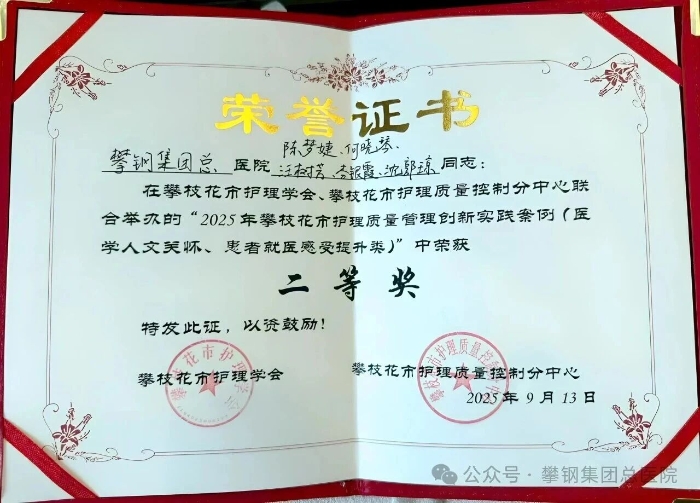 荣誉证书
陈梦婕、何晓琴、
攀钢集团总 医院 汪树芳、李银霞、沈郭琼 同志：
在攀枝花市护理学会、攀枝花市护理质量控制分中心联
合举办的“2025年攀枝花市护理质量管理创新实践案例（医
学人文关怀、患者就医感受提升类）”中荣获
二等奖
特发此证，以资鼓励！
攀枝花市护理学会
攀枝花市护理质量控制分中心
2025年9月13日
公众号·攀钢集团总医院